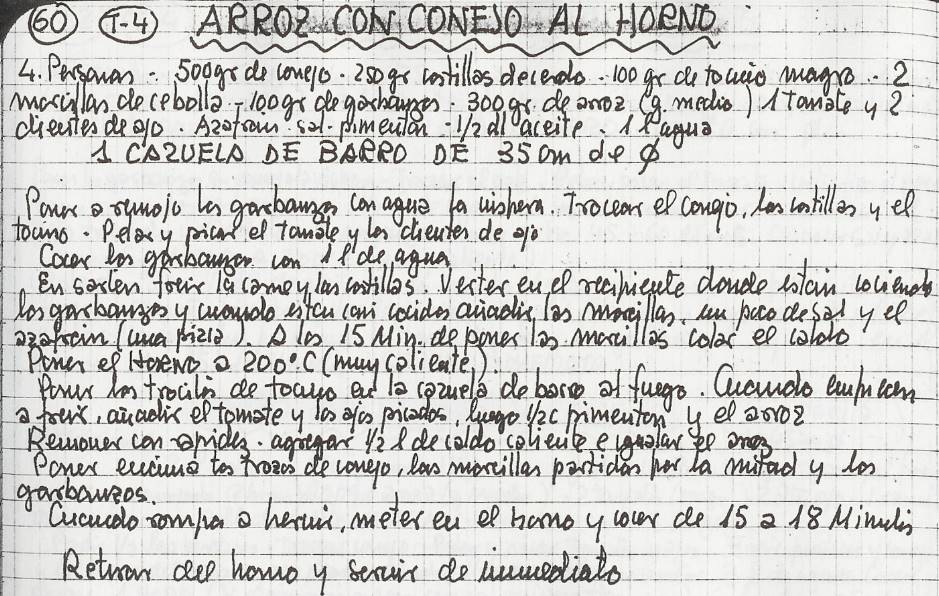 60 T-4 ARROZ CON CONEJO AL HORNO
4. Personas - 500gr de conejo - 250gr costillas de cerdo - 100 gr de tocino magro - 2
morcillas de cebolla - 100gr de garbanzos - 300gr. de arroz (g. medio) 1 Tomate y 2
dientes de ajo. Azafrain. sal. pimentón - 1/2 dl aceite - 1 l agua
1 CAZUELA DE BARRO DE 35 cm de ø
Poner a remojo los garbanzos con agua la vispera. Trocear el conejo, las costillas y el
tocino. Pelar y picar el Tomate y los dientes de ajo
Cocer los garbanzos con 1 l de agua
En sarten freir la carne y las costillas. Verter en el recipiente donde estain cociendo
los garbanzos y cuando estan casi cocidos añadir las morcillas, un poco de sal y el
azafrain (una pizca). A los 15 Min. de poner las morcillas colar el caldo
Poner el HORNO a 200°C (muy caliente).
Poner los trocitos de tocino en la cazuela de barro al fuego. Cuando empiecen
a freir, añadir el tomate y los ajos picados, luego 1/2 c pimenton y el arroz
Remover con rapidez. agregar 1/2 l de caldo caliente e igualar el arroz
Poner encima los trozos de conejo, las morcillas partidas por la mitad y los
garbanzos.
Cuando rompa a hervir, meter en el horno y cocer de 15 a 18 Minutos
Retirar del horno y servir de inmediato